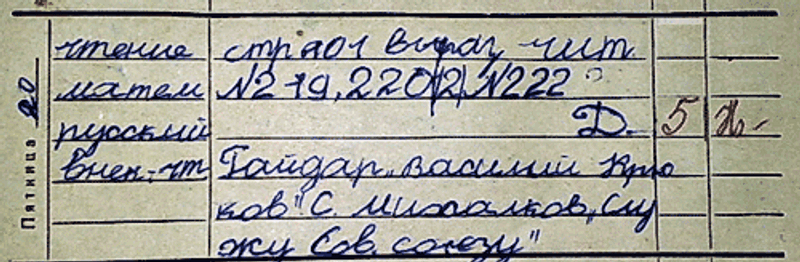 Пятница 20
чтение стр 101 выраз, чит.
матем №219, 220(2), №222
русский Д.- 5
внек.-чт Гайдар „Василий Крю
ков" С. Михалков „Слу
жу Сов. союзу"